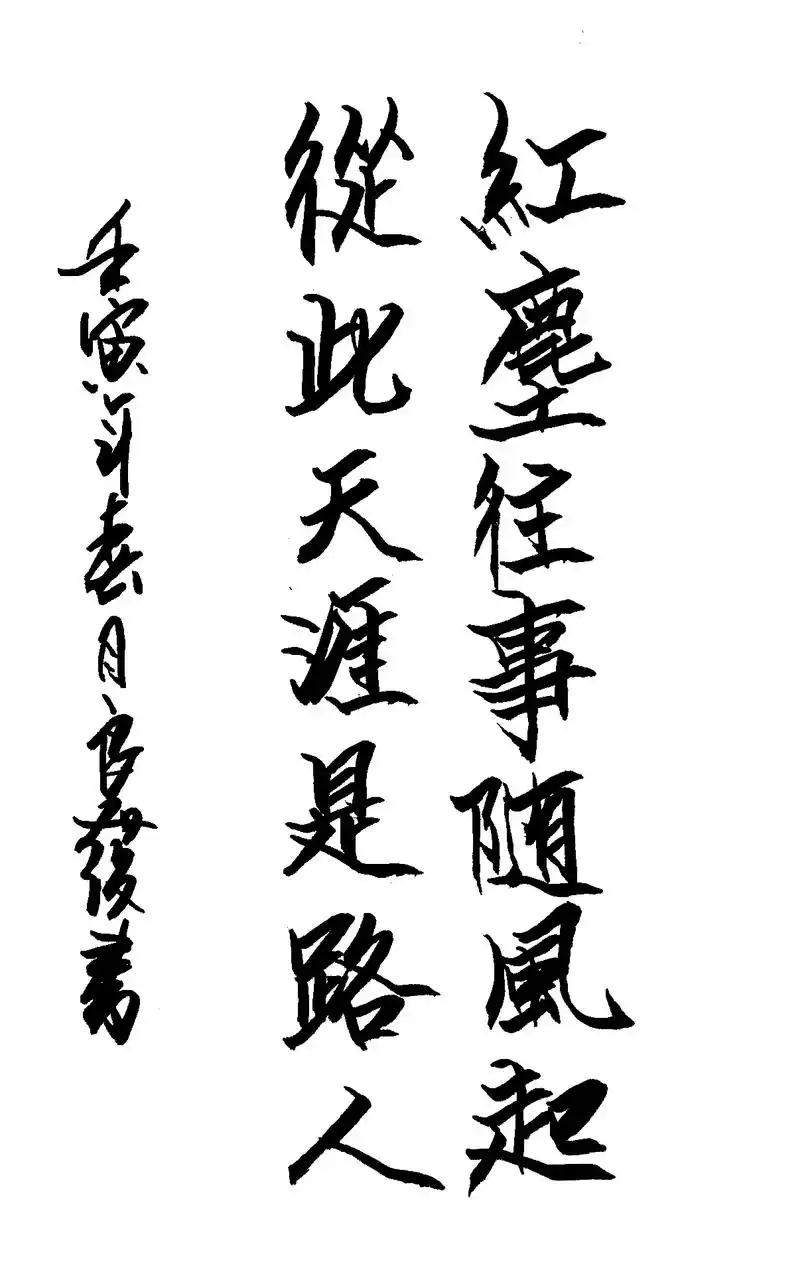 紅塵往事随風起
從此天涯是路人
壬寅年春月良發書